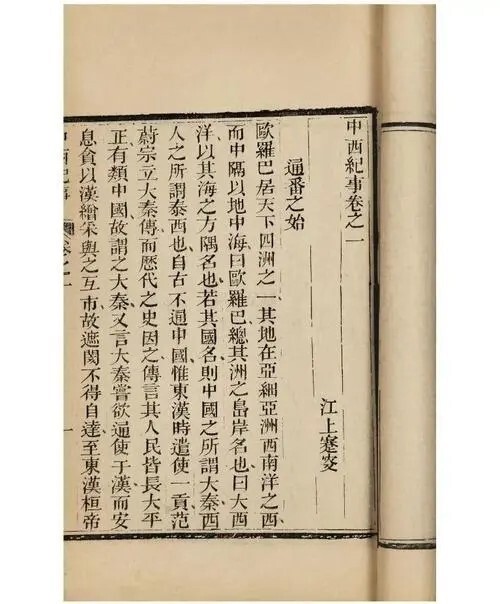 中西紀事卷之一
江上蹇叜
通番之始
歐羅巴居天下四洲之一其地在亞細亞洲西南洋之西
而中隔以地中海曰歐羅巴總其洲之島岸名也曰大西
洋以其海之方隅名也若其國名則中國之所謂大秦西
人之所謂泰西也自古不通中國惟東漢時遣使一貢范
蔚宗立大秦傳而歷代之史因之傳言其人民皆長大平
正有類中國故謂之大秦又言大秦嘗欲通使于漢而安
息食以漢繒采與之互市故遮閡不得自達至東漢桓帝
中西紀事 卷之一 一